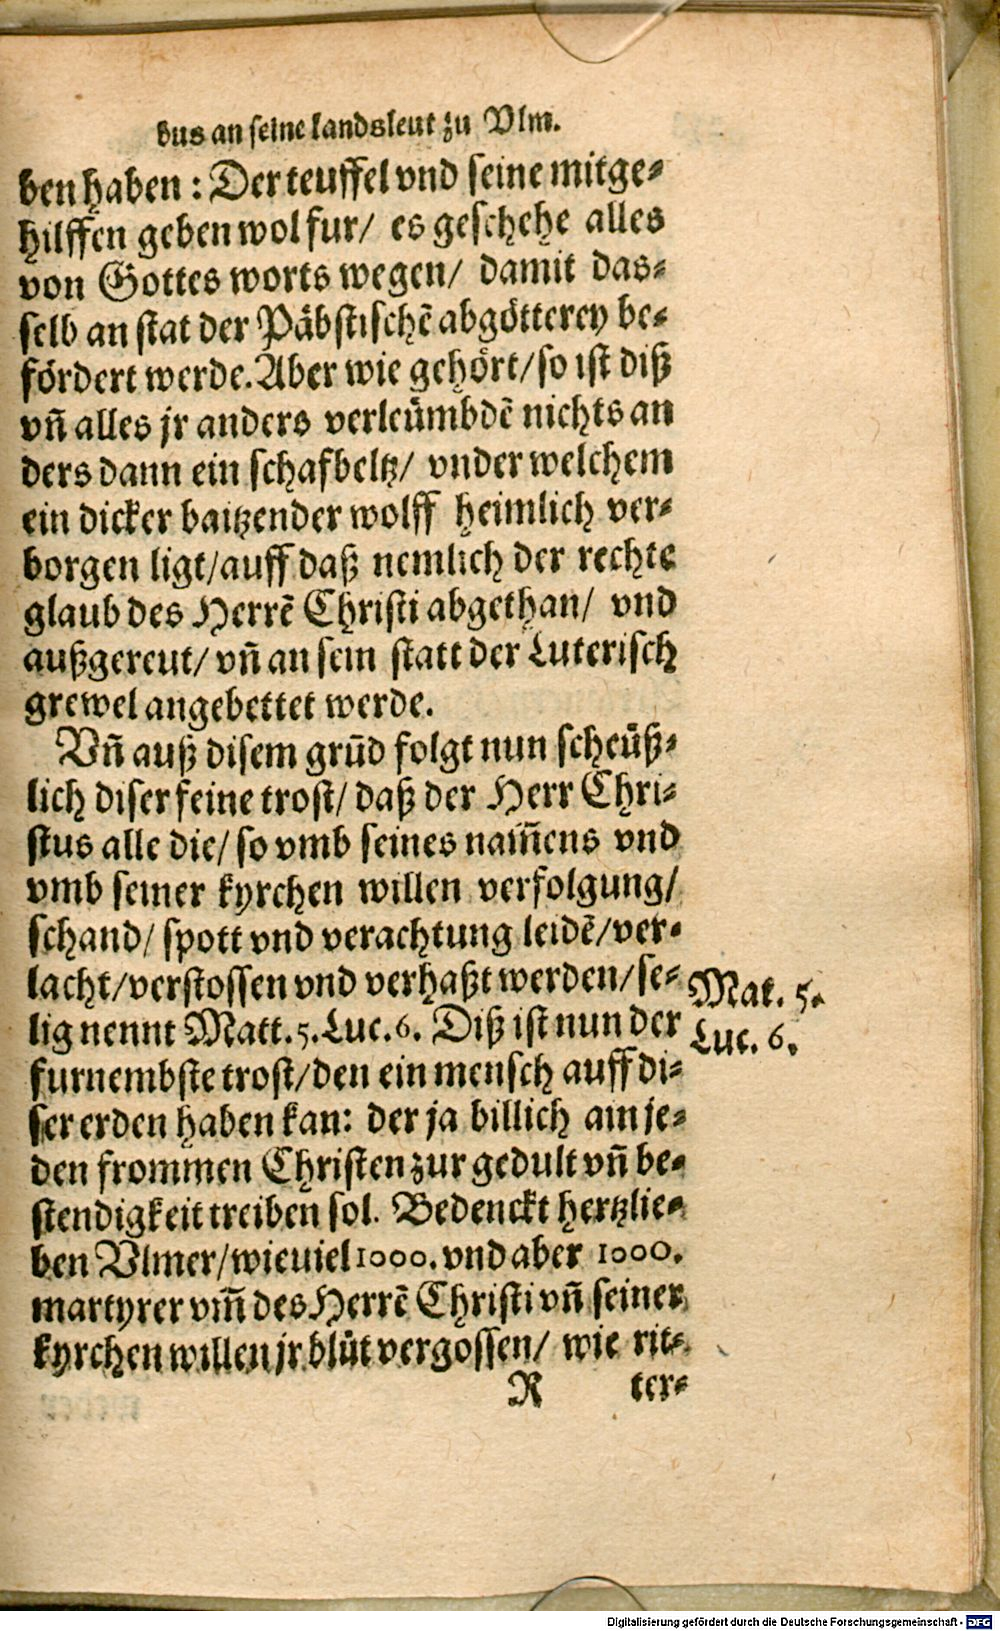 bus an seine landsleut zu Vlm.
ben haben : Der teuffel vnd seine mitge⸗
hilffen geben wol fur/ es geschehe alles
von Gottes worts wegen/ damit das⸗
selb an stat der Päbstischē abgötterey be⸗
fördert werde. Aber wie gehört/so ist diß
vñ alles jr anders verleümbdē nichts an
ders dann ein schafbeltz/ vnder welchem
ein dicker baitzender wolff heimlich ver⸗
borgen ligt/auff daß nemlich der rechte
glaub des Herrē Christi abgethan/ vnd
außgereut/ vñ an sein statt der Luterisch
grewel angebettet werde.
Vñ auß disem grūd folgt nun scheüß⸗
lich diser feine trost/ daß der Herr Chri⸗
stus alle die/ so vmb seines nam̃ens vnd
vmb seiner kyrchen willen verfolgung/
schand/ spott vnd verachtung leidē/ver⸗
lacht/verstossen vnd verhaßt werden/se⸗
lig nennt Matt.5.Luc.6. Diß ist nun der
Mat. 5.
Luc. 6.
furnembste trost/den ein mensch auff di⸗
ser erden haben kan: der ja billich ain je⸗
den frommen Christen zur gedult vñ be⸗
stendigkeit treiben sol. Bedenckt hertzlie⸗
ben Vlmer/wieuiel 1000. vnd aber 1000.
martyrer vm̃ des Herrē Christi vñ seiner
kyrchen willen jr blůt vergossen/ wie rit⸗
R ter⸗
Digitalisierung gefördert durch die Deutsche Forschungsgemeinschaft - DFG